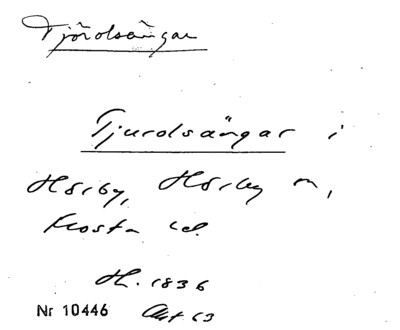 Tjördsängar
Tjurdsängar i
Hörby, Hörby sn,
Frosta hd.
H. 1836
Nr 10446 Akt 63